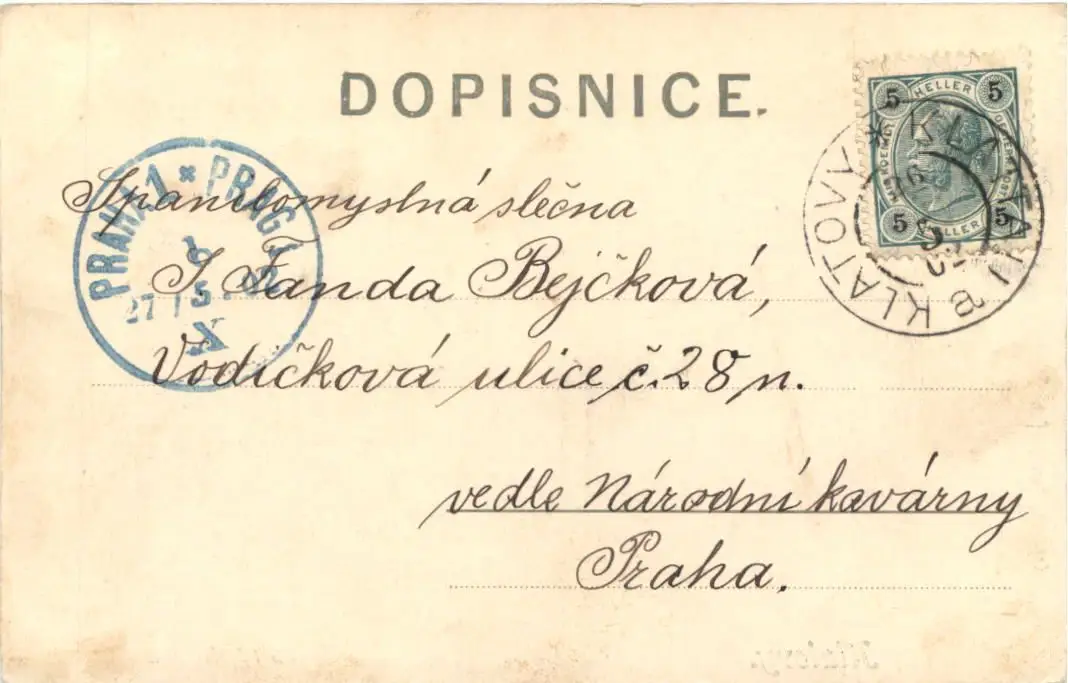 DOPISNICE.
5 HELLER 5
5 HELLER 5
KLATOVY * KLATTAU
B
PRAHA 1 * PRAG 1
27/5
X
Spanilomyslná slečna
J. Fanda Bejčková,
Vodičková ulice, č. 28 n.
vedle Národní kavárny
Praha.